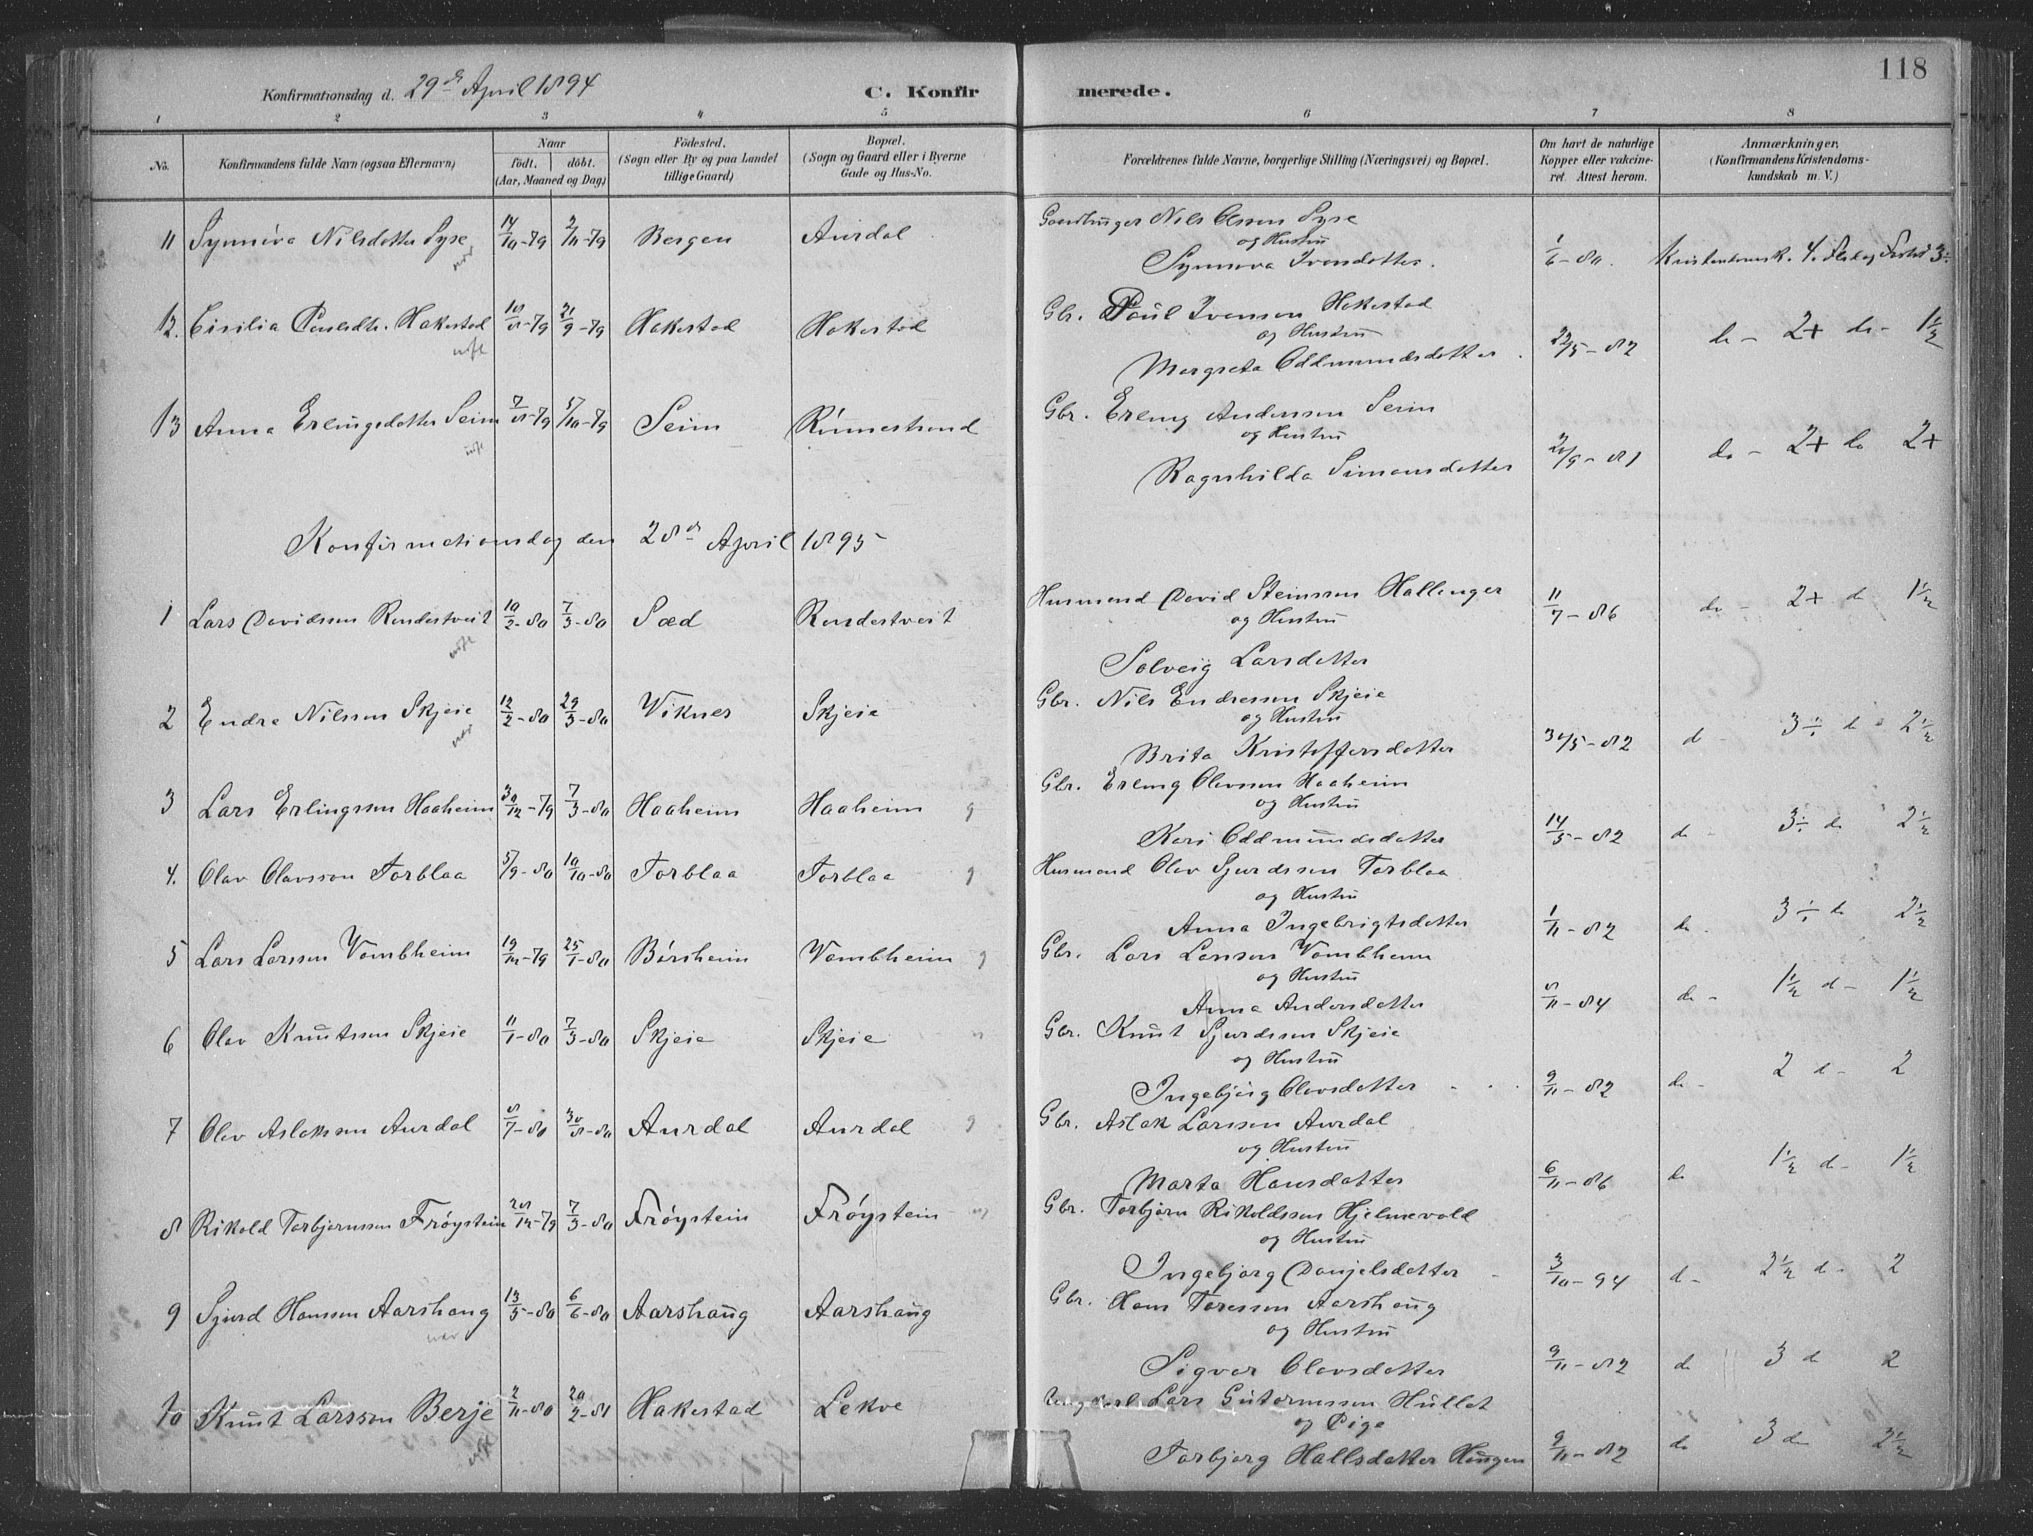 118
Konfirmationsdag d. 29de April 1894 C. Konfirmerede.
1 2 3 4 5 6 7 8
No. Konfirmandens fulde Navn (ogsaa Efternavn) Naar født. døbt. (Aar, Maaned og Dag) Fødested. (Sogn eller By og paa Landet tillige Gaard) Bopæl. (Sogn og Gaard eller i Byerne Gade og Hus-No. Forældrenes fulde Navne, borgerlige Stilling (Næringsvei) og Bopæl. Om havt de naturlige Kopper eller vakcineret. Attest herom. Anmærkninger. (Konfirmandens Kristendomskundskab m. V.)
11 Synnöva Nilsdotter Syse 14/10-79 2/11-79 Bergen Aurdal Gaardbruger Nils Olsson Syse
og Hustru
Synnöva Ivarsdotter. 1/6-80. Kristendomsk. 4. Flid og Forhold 3÷
12. Cisilia Paulsdtr. Hakestad 10/8-79 21/9-79 Hakestad Hakestad Gbr. Paul Ivarson Hakestad
og Hustru
Margreta Oddmundsdotter. 22/5-82 do - 2+ do - 1½
13 Anna Erlingsdotter Seim 7/8-79 5/10-79 Seim Rönnestrand Gbr. Erling Anderssen Seim
og Hustru
Ragnhilda Simonsdotter 21/9-81 do - 2+ do 2+
Konfirmationsdag den 28de April 1895
1 Lars Davidsson Rondestveit 10/2-80 7/3-80 Sæd Rondestveit Husmand David Steinsson Hallanger
og Hustru
Solveig Larsdotter 11/7-86 do - 2+ do 1½
2 Endre Nilsson Skjeie 12/2-80 29/3-80 Viknes Skjeie Gbr. Nils Endresson Skjeie
og Hustru
Brita Kristoffersdotter 31/5-82 do - 3÷ do 2½
3 Lars Erlingsson Haaheim 30/12-79 7/3-80 Haaheim Haaheim g Gbr. Erling Olavsson Haaheim
og Hustru
Kari Oddmundsdotter 14/5-82 do - 3÷ do 2½
4. Olav Olavsson Torblaa 5/9-80 10/10-80 Torblaa Torblaa g Husmand Olav Sjurdsson Torblaa
og Hustru
Anna Ingebrigtsdotter 1/11-82 do. 3÷ do 2½
5 Lars Larsson Vambheim 19/12-79 25/1-80 Börsheim Vambheim g Gbr. Lars Larsson Vambheim
og Hustru
Anna Andersdotter 8/11-84 do - 1½ do - 1½
6 Olav Knutsson Skjeie 11/1-80 7/3-80 Skjeie Skjeie Gbr. Knut Sjurdsson Skjeie
og Hustru
Ingebjörg Olavsdotter 9/11-82 do - 2 do - 2
7 Olav Aslaksson Aurdal 8/7-80 30/8-80 Aurdal Aurdal g Gbr. Aslak Larsson Aurdal
og Hustru
Marta Hansdotter 6/11-86 do 1½ do - 1½
8 Rikold Torbjörnsson Fröystein 28/12-79 7/3-80 Fröystein Fröystein Gbr. Torbjörn Rikoldsson Hjelmevold
og Hustru
Ingebjorg Danjelsdotter 3/10-94 do - 2½ do - 2
9 Sjurd Hansson Aarshaug 13/5-80 6/6-80 Aarshaug Aarshaug Gbr. Hans Toresson Aarshaug
og Hustru
Sigvor Olavsdotter 9/11-82 do 3 do 2
10 Knut Larsson Berje 2/11-80 20/2-81 Hakestad Lekve Ungkarl Lars Gutormsson Hullet
og Pige
Torbjorg Hallsdotter Haugen 9/11-82 do 3 do 2½